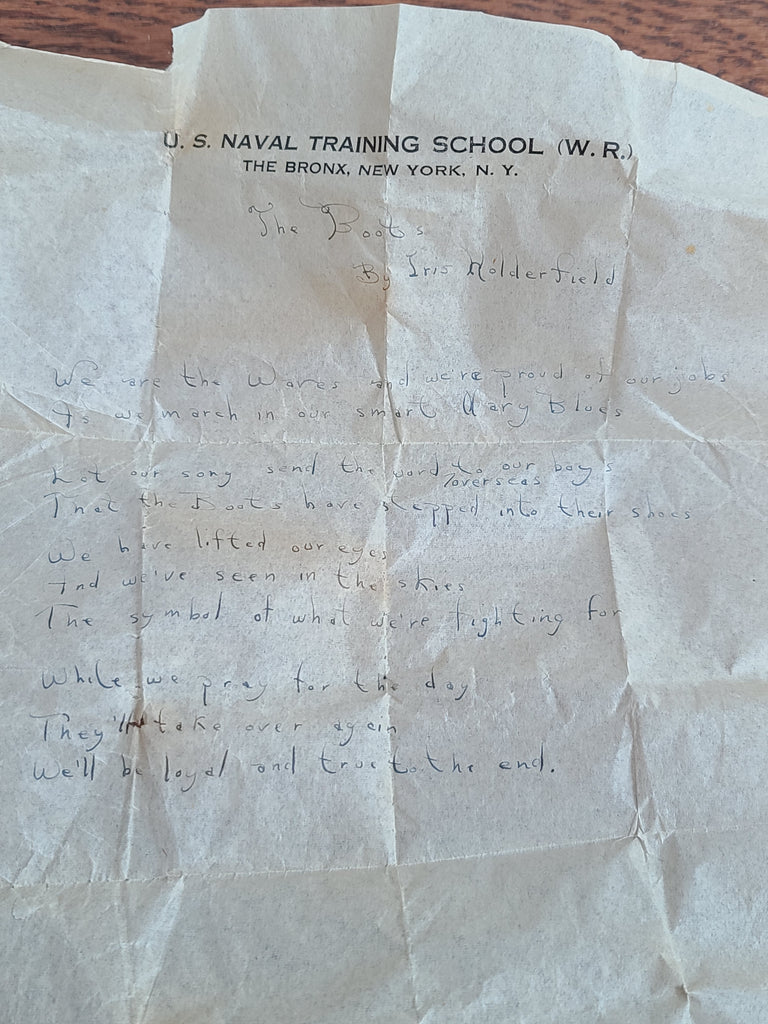 U. S. NAVAL TRAINING SCHOOL (W. R.)
THE BRONX, NEW YORK, N. Y.
The Boots
By Iris Holderfield
We are the Waves and we're proud of our jobs
As we march in our smart Navy Blues
Let our song send the word to our boys
overseas
That the Boots have stepped into their shoes
We have lifted our eyes
And we've seen in the skies
The symbol of what we're fighting for
While we pray for the day
They'll take over again
We'll be loyal and true to the end.